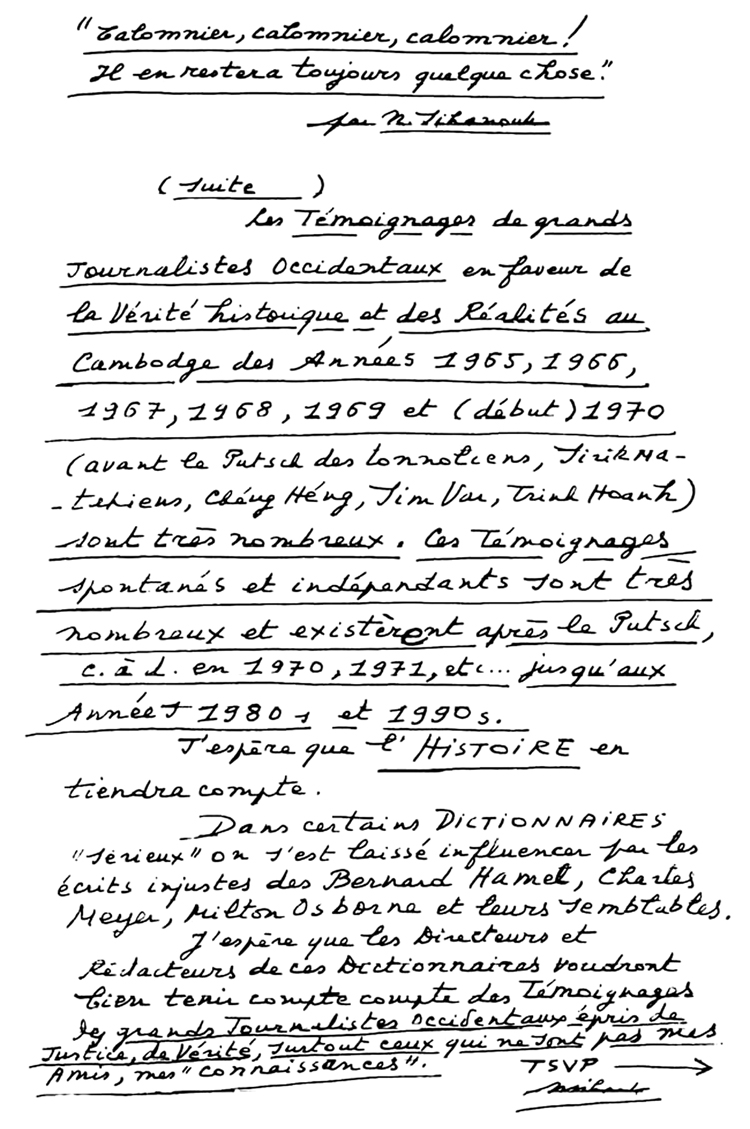 "Calomnier, calomnier, calomnier!
Il en restera toujours quelque chose."
par N. Sihanouk
(suite)
Les Témoignages de grands
Journalistes Occidentaux en faveur de
la Vérité historique et des Réalités au
Cambodge des Années 1965, 1966,
1967, 1968, 1969 et (début) 1970
(avant le Putsch des Lonnoliens, Sirik Ma-
-tekiens, Chéng Héng, Sim Var, Trinh Hoanh)
sont très nombreux. Ces Témoignages
spontanés et indépendants sont très
nombreux et existèrent après le Putsch,
c. à d. en 1970, 1971, etc... jusqu'aux
Années 1980s et 1990s.
J'espère que l'HISTOIRE en
tiendra compte.
Dans certains DICTIONNAIRES
"sérieux" on s'est laissé influencer par les
écrits injustes des Bernard Hamel, Charles
Meyer, Milton Osborne et leurs semblables.
J'espère que les Directeurs et
Rédacteurs de ces Dictionnaires voudront
bien tenir compte compte des Témoignages
des grands Journalistes Occidentaux épris de
Justice, de Vérité, surtout ceux qui ne sont pas mes
Amis, mes "connaissances".
TSVP